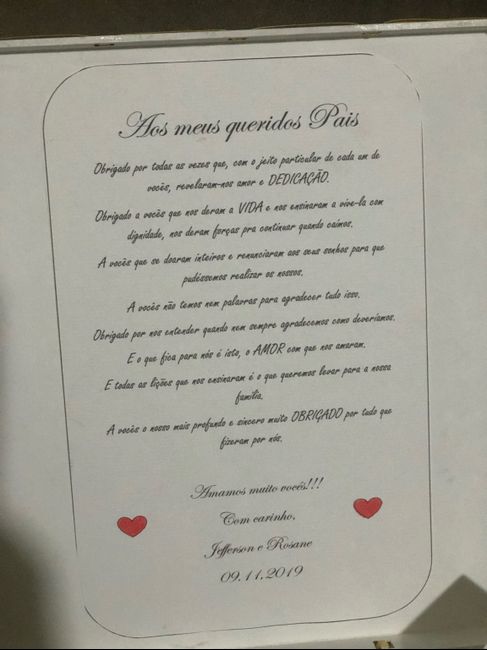 Aos meus queridos Pais
Obrigado por todas as vezes que, com o jeito particular de cada um de
vocês, revelaram-nos amor e DEDICAÇÃO.
Obrigado a vocês que nos deram a VIDA e nos ensinaram a vive-la com
dignidade, nos deram forças pra continuar quando caímos.
A vocês que se doaram inteiros e renunciaram aos seus sonhos para que
pudéssemos realizar os nossos.
A vocês não temos nem palavras para agradecer tudo isso.
Obrigado por nos entender quando nem sempre agradecemos como deveríamos.
E o que fica para nós é isto, o AMOR com que nos amaram.
E todas as lições que nos ensinaram é o que queremos levar para a nossa
família.
A vocês o nosso mais profundo e sincero muito OBRIGADO por tudo que
fizeram por nós.
Amamos muito vocês!!!
Com carinho,
Jefferson e Rosane
09.11.2019